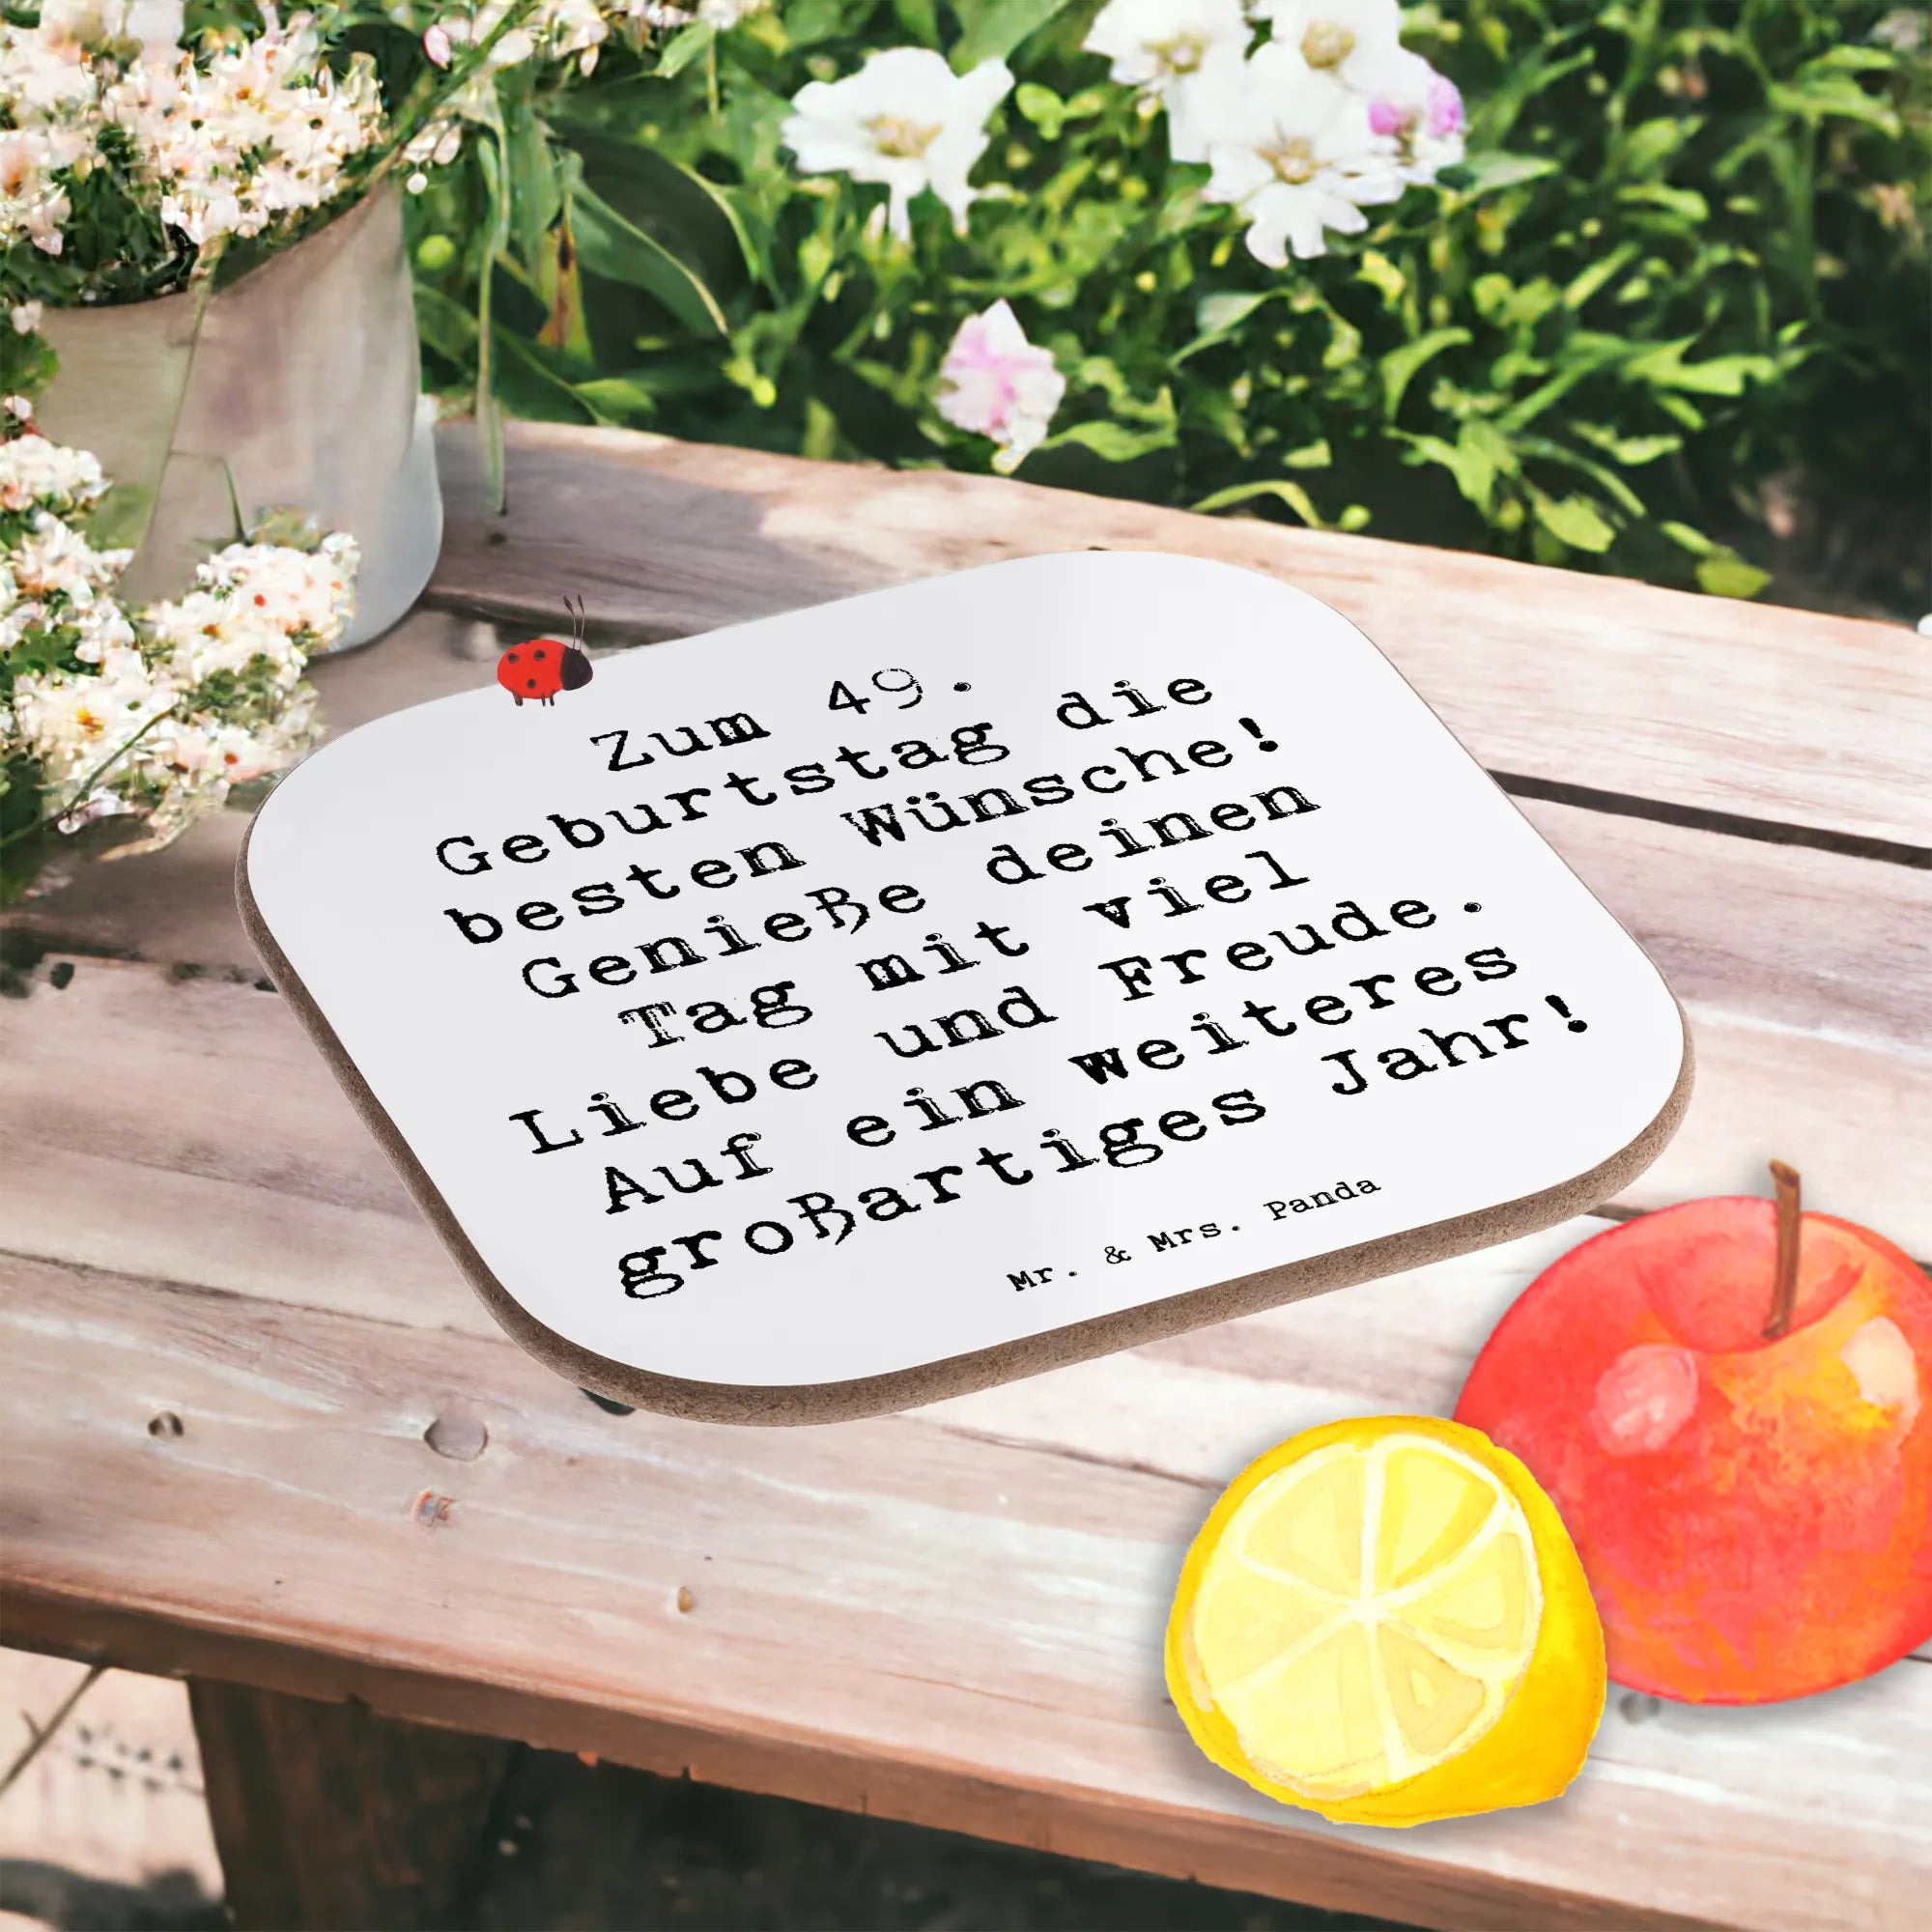 Zum 49.
Geburtstag die
besten Wünsche!
Genieße deinen
Tag mit viel
Liebe und Freude.
Auf ein weiteres
großartiges Jahr!
Mr. & Mrs. Panda